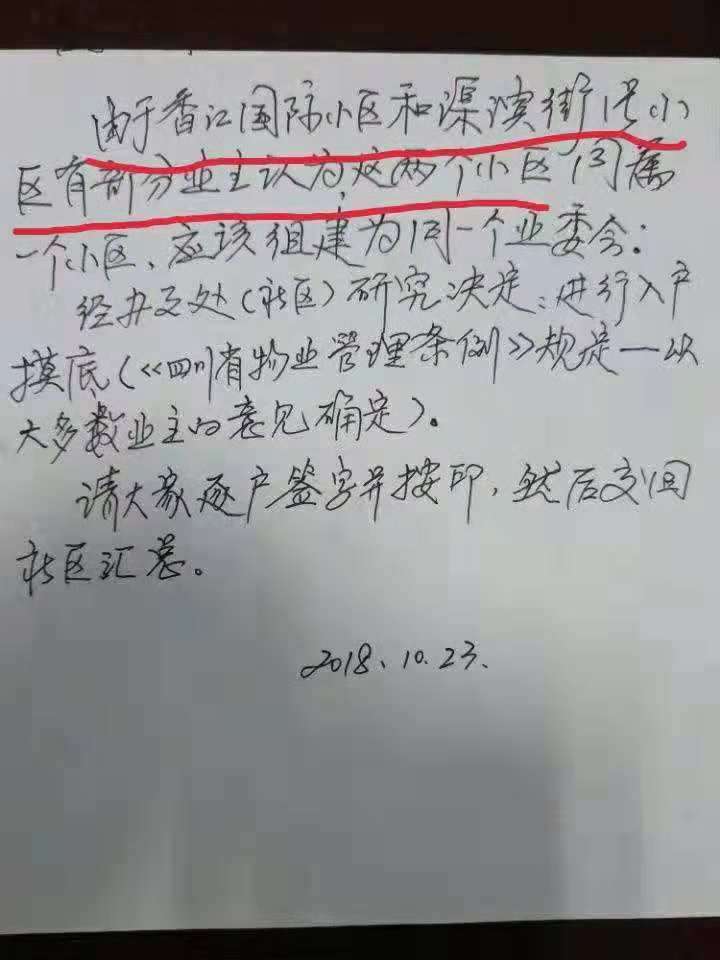 由于香江国际小区和渠滨街1号小
区有部分业主认为,这两个小区同属
一个小区、应该组建为同一个业委会:
经办事处(社区)研究决定:进行入户
摸底(《四川省物业管理条例》规定一以
大多数业主的意见确定)。
请大家逐户签字并按印,然后交回
社区汇总。
2018.10.23.